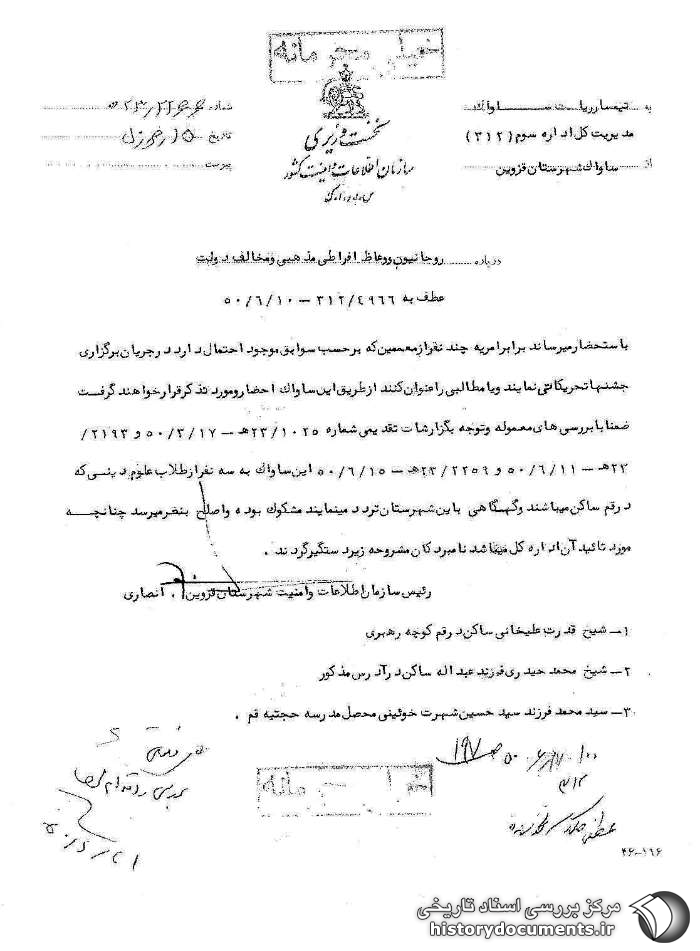 خیلی محرمانه
به تیمسار ریاست ساواک
مدیریت کل اداره سوم (۳۱۲)
از ساواک شهرستان قزوین
نخست وزیری
سازمان اطلاعات و امنیت کشور
س.ا.و.ا.ک
شماره
تاریخ
پیوست
درباره روحانیون ووعاظ افراطی مذهبی ومخالف دولت
عطف به ۳۱۲/٤۹٦٦ – ۵۰/٦/۱۰
باستحضار میرساند برابر امریه چند نفر از معممین که برحسب سوابق موجود احتمال دارد در جریان برگزاری
جشنها تحریکاتی نمایند ویا مطالبی را عنوان کنند از طریق این ساواک احضار ومورد تذکر قرار خواهند گرفت
ضمنا با بررسی های معموله وتوجه بگزارشات تقدیمی شماره ۲۳/۱۰۲۵هـ – ۵۰/۳/۱۷ و ۲۱۹۳/
۲۳هـ – ۵۰/٦/۱۱ و ۲۳/۲۲۵۹هـ – ۵۰/٦/۱۵ این ساواک به سه نفر از طلاب علوم دینی که
در قم ساکن میباشند وگهگاهی باین شهرستان تردد مینمایند مشکوک بوده واصلح بنظر میرسد چنانچه
مورد تائید آن اداره کل میباشد نامبردگان مشروحه زیر دستگیر گردند .
رئیس سازمان اطلاعات وامنیت شهرستان قزوین . انصاری
۱– شیخ قدرت علیخانی ساکن در قم کوچه رهبری
۲– شیخ محمد حیدری فرزند عبداله ساکن در آدرس مذکور
۳– سید محمد فرزند سید حسین شهرت خوئینی محصل مدرسه حجتیه قم .
خیلی محرمانه
۳۱۲
۴۶-۱۱۶
مرکز بررسی اسناد تاریخی
historydocuments.ir